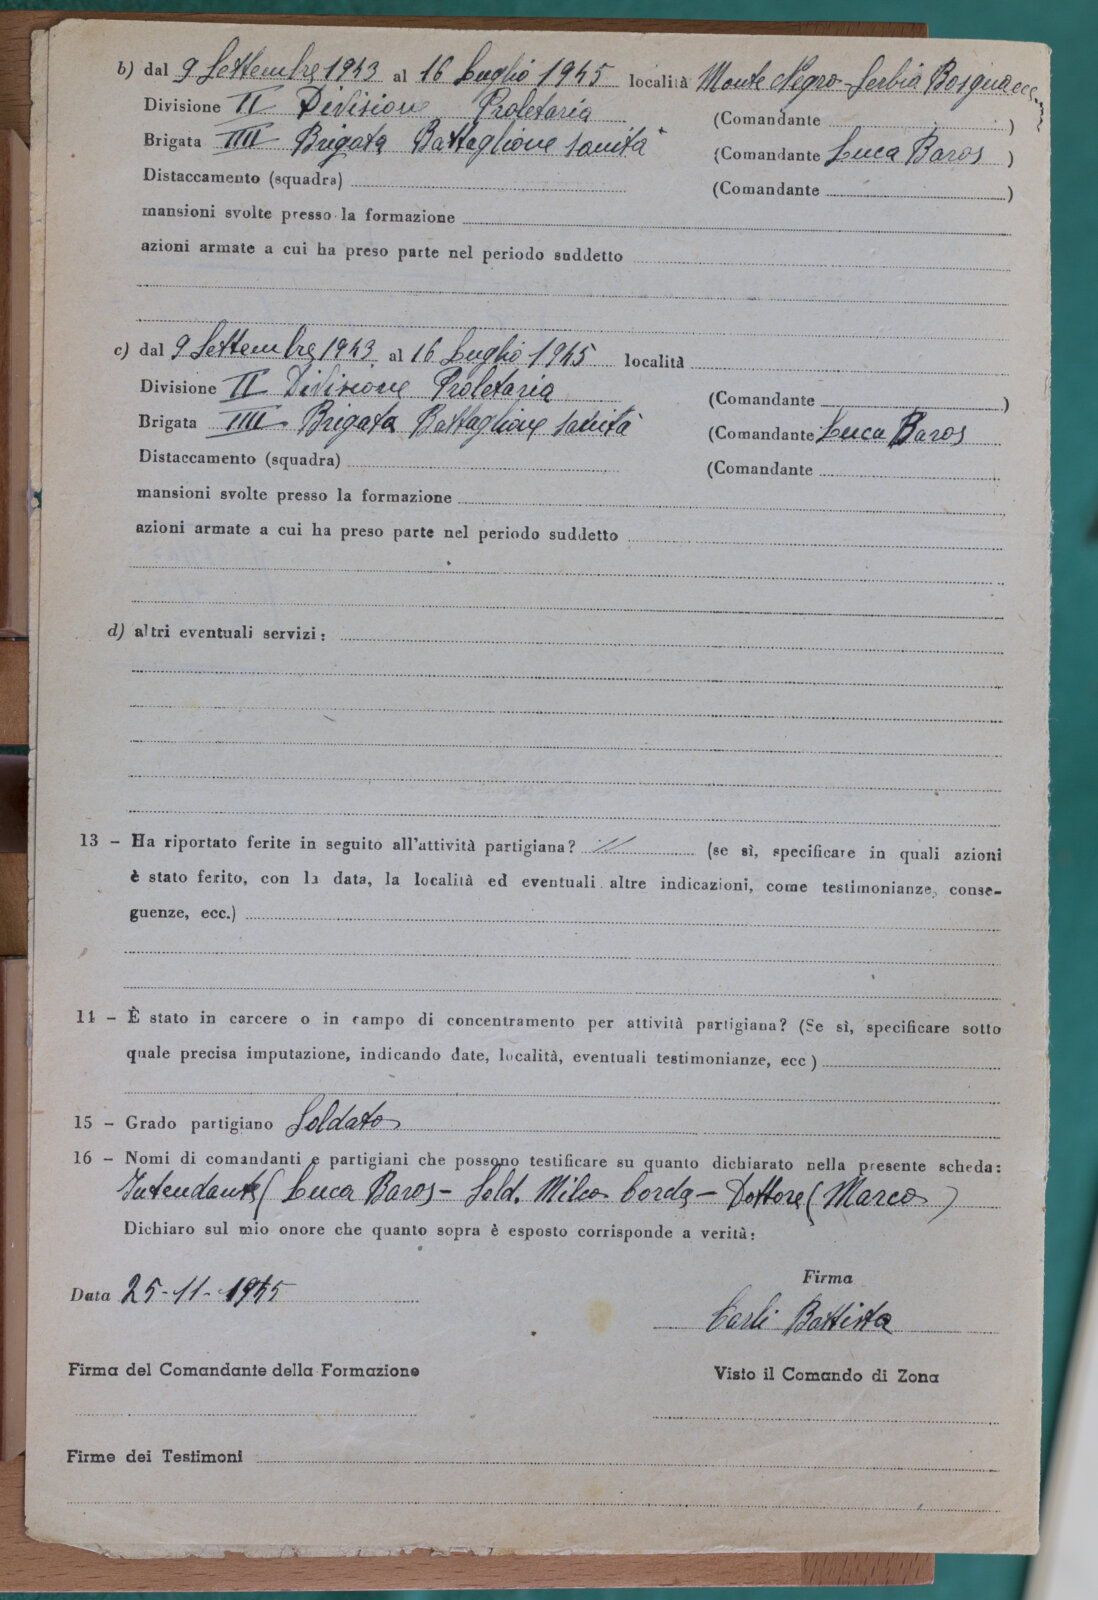 b) dal 9 Settembre 1943 al 16 Luglio 1945 località Monte Negro - Serbia Bosgna ecc.
Divisione II Divisione Proletaria (Comandante )
Brigata IIII Brigata Battaglione sanità (Comandante Luca Baros )
Distaccamento (squadra) (Comandante )
mansioni svolte presso la formazione
azioni armate a cui ha preso parte nel periodo suddetto
c) dal 9 Settembre 1943 al 16 Luglio 1945 località
Divisione II Divisione Proletaria (Comandante )
Brigata IIII Brigata Battaglione sanità (Comandante Luca Baros
Distaccamento (squadra) (Comandante
mansioni svolte presso la formazione
azioni armate a cui ha preso parte nel periodo suddetto
d) altri eventuali servizi:
13 - Ha riportato ferite in seguito all'attività partigiana? // (se sì, specificare in quali azioni
è stato ferito, con la data, la località ed eventuali altre indicazioni, come testimonianze, conse-
guenze, ecc.)
14 - È stato in carcere o in campo di concentramento per attività partigiana? (Se sì, specificare sotto
quale precisa imputazione, indicando date, località, eventuali testimonianze, ecc)
15 - Grado partigiano Soldato
16 - Nomi di comandanti e partigiani che possono testificare su quanto dichiarato nella presente scheda:
Intendante ( Luca Baros - Sold. Milco Corda - Dottore ( Marco )
Dichiaro sul mio onore che quanto sopra è esposto corrisponde a verità:
Data 25-11-1945
Firma
Carli Battista
Firma del Comandante della Formazione Visto il Comando di Zona
Firme dei Testimoni